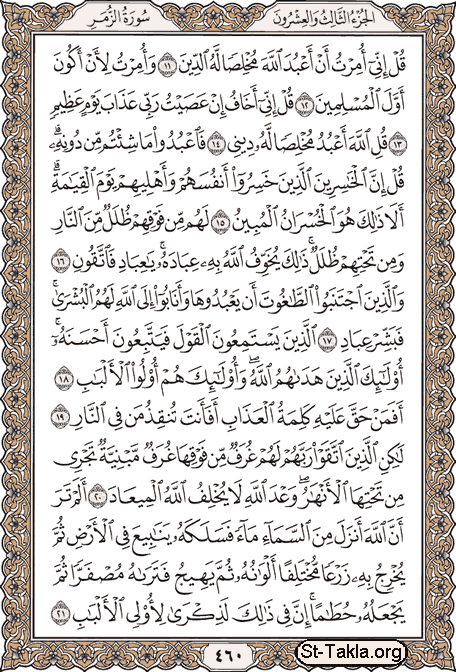 الجزء الثالث والعشرون سورة الزمر
قُلْ إِنِّىٓ أُمِرْتُ أَنْ أَعْبُدَ ٱللَّهَ مُخْلِصًا لَّهُ ٱلدِّينَ ١١ وَأُمِرْتُ لِأَنْ أَكُونَ
أَوَّلَ ٱلْمُسْلِمِينَ ١٢ قُلْ إِنِّىٓ أَخَافُ إِنْ عَصَيْتُ رَبِّى عَذَابَ يَوْمٍ عَظِيمٍ
١٣ قُلِ ٱللَّهَ أَعْبُدُ مُخْلِصًا لَّهُۥ دِينِى ١٤ فَٱعْبُدُوا۟ مَا شِئْتُم مِّن دُونِهِۦ ۗ
قُلْ إِنَّ ٱلْخَٰسِرِينَ ٱلَّذِينَ خَسِرُوٓا۟ أَنفُسَهُمْ وَأَهْلِيهِمْ يَوْمَ ٱلْقِيَٰمَةِ ۗ
أَلَا ذَٰلِكَ هُوَ ٱلْخُسْرَانُ ٱلْمُبِينُ ١٥ لَهُم مِّن فَوْقِهِمْ ظُلَلٌ مِّنَ ٱلنَّارِ
وَمِن تَحْتِهِمْ ظُلَلٌ ۚ ذَٰلِكَ يُخَوِّفُ ٱللَّهُ بِهِۦ عِبَادَهُۥ ۚ يَٰعِبَادِ فَٱتَّقُونِ ١٦
وَٱلَّذِينَ ٱجْتَنَبُوا۟ ٱلطَّٰغُوتَ أَن يَعْبُدُوهَا وَأَنَابُوٓا۟ إِلَى ٱللَّهِ لَهُمُ ٱلْبُشْرَىٰ ۚ
فَبَشِّرْ عِبَادِ ١٧ ٱلَّذِينَ يَسْتَمِعُونَ ٱلْقَوْلَ فَيَتَّبِعُونَ أَحْسَنَهُۥٓ ۚ
أُو۟لَٰٓئِكَ ٱلَّذِينَ هَدَىٰهُمُ ٱللَّهُ ۖ وَأُو۟لَٰٓئِكَ هُمْ أُو۟لُوا۟ ٱلْأَلْبَٰبِ ١٨
أَفَمَنْ حَقَّ عَلَيْهِ كَلِمَةُ ٱلْعَذَابِ أَفَأَنتَ تُنقِذُ مَن فِى ٱلنَّارِ ١٩
لَٰكِنِ ٱلَّذِينَ ٱتَّقَوْا۟ رَبَّهُمْ لَهُمْ غُرَفٌ مِّن فَوْقِهَا غُرَفٌ مَّبْنِيَّةٌ تَجْرِى
مِن تَحْتِهَا ٱلْأَنْهَٰرُ ۖ وَعْدَ ٱللَّهِ لَا يُخْلِفُ ٱللَّهُ ٱلْمِيعَادَ ٢٠ أَلَمْ تَرَ
أَنَّ ٱللَّهَ أَنزَلَ مِنَ ٱلسَّمَآءِ مَآءً فَسَلَكَهُۥ يَنَٰبِيعَ فِى ٱلْأَرْضِ ثُمَّ
يُخْرِجُ بِهِۦ زَرْعًا مُّخْتَلِفًا أَلْوَٰنُهُۥ ثُمَّ يَهِيجُ فَتَرَىٰهُ مُصْفَرًّا ثُمَّ
يَجْعَلُهُۥ حُطَٰمًا ۚ إِنَّ فِى ذَٰلِكَ لَذِكْرَىٰ لِأُو۟لِى ٱلْأَلْبَٰبِ ٢١
٤٦٠
St-Takla.org